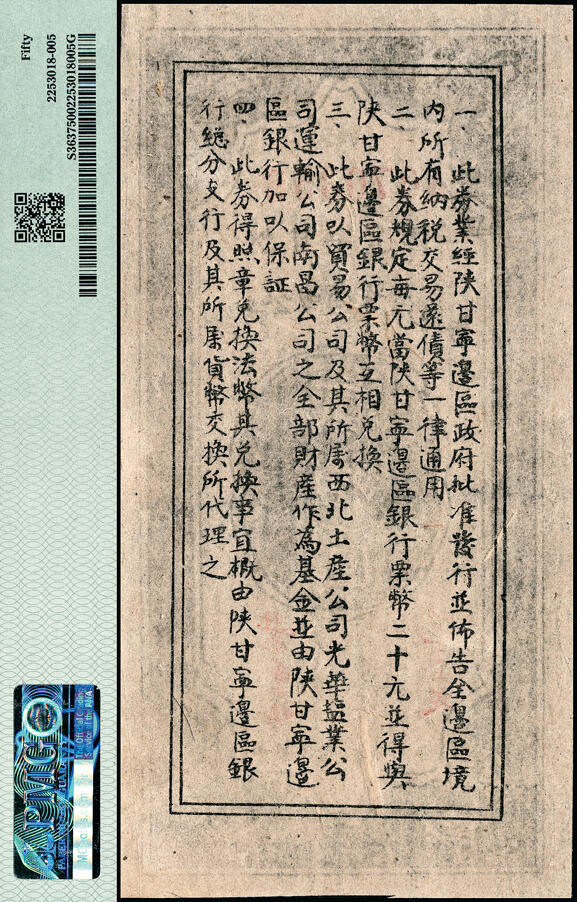 一、此券業經陝甘寧邊區政府批准發行並佈告全邊區境
内所有納税交易還債等一律通用
二、此券規定每元當陝甘寧邊區銀行票幣二十元並得與
陝甘寧邊區銀行票幣互相兑換
三、此券以貿易公司及其所屬西北土產公司光華塩業公
司運輸公司南昌公司之全部財產作為基金並由陝甘寧邊
區銀行加以保証
四、此券得照章兑換法幣其兑換事宜概由陝甘寧邊區銀
行總分支行及其所屬貨幣交換所代理之
Fifty
2253018-005
S36375002253018005G
PMG
The Official Grading
Service of the ANA